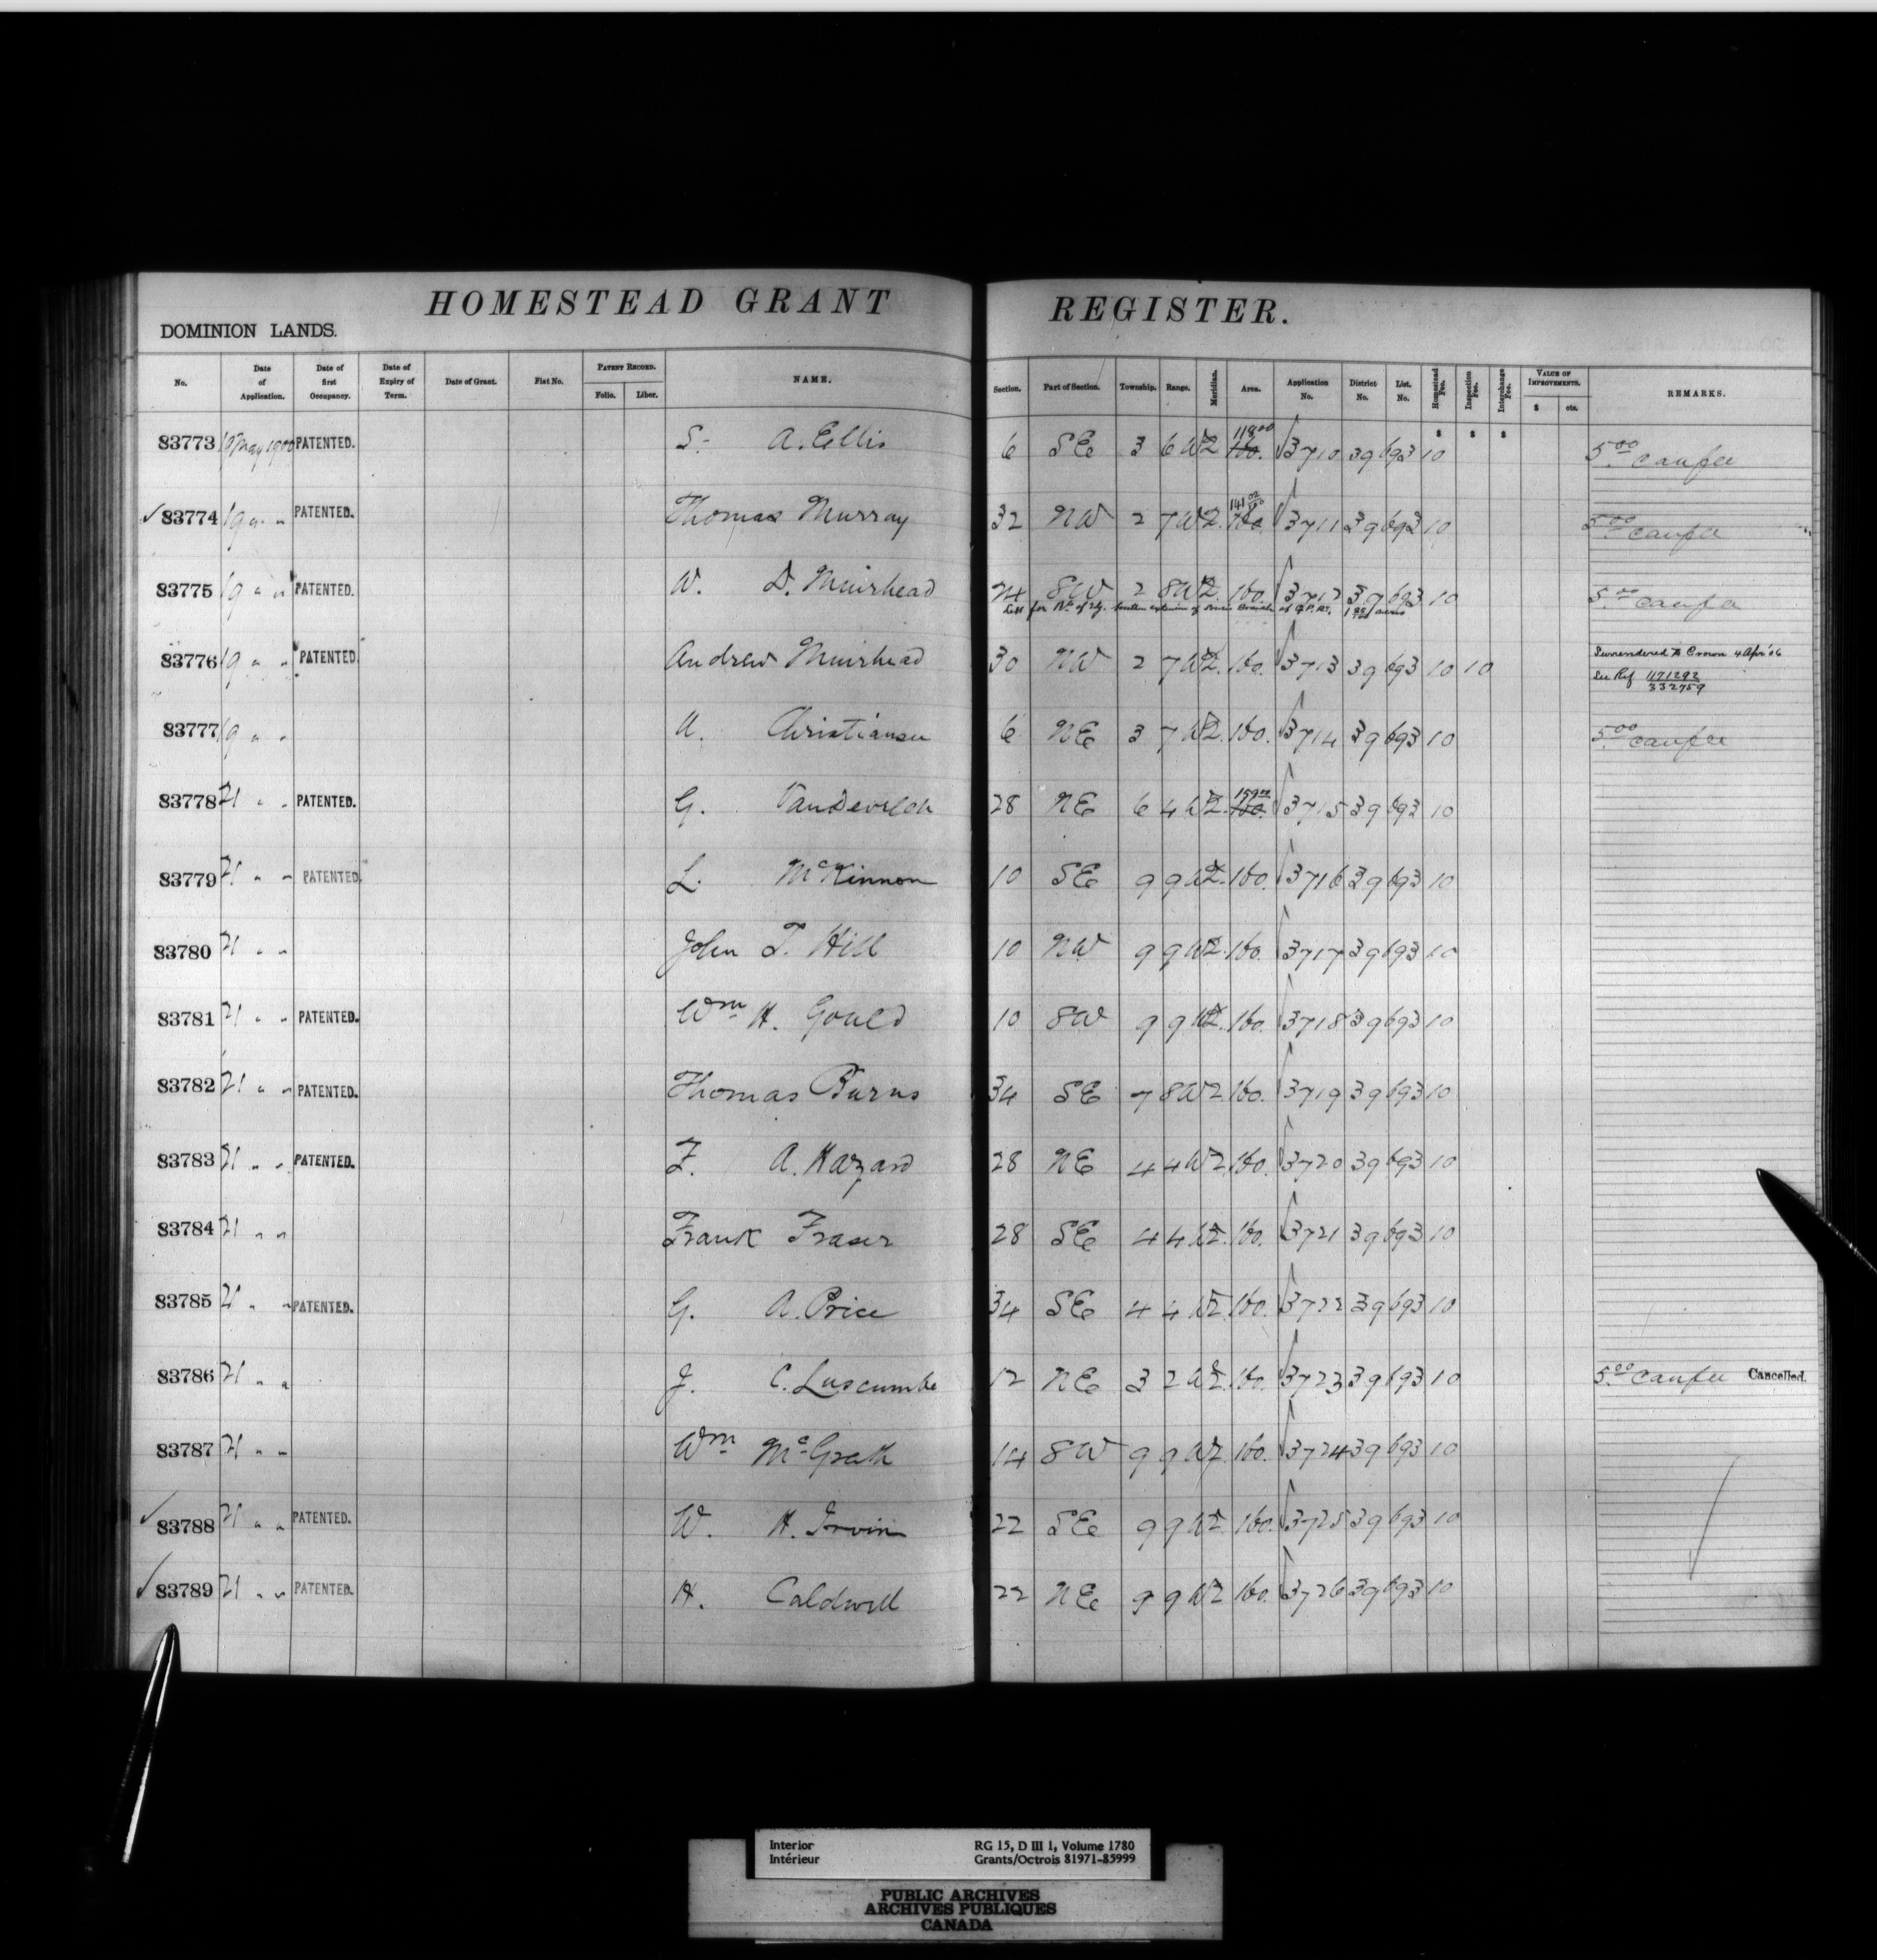 HOMESTEAD GRANT REGISTER.
DOMINION LANDS.
No. Date of Application. Date of first Occupancy. Date of Expiry of Term. Date of Grant. Fiat No. PATENT RECORD. Folio. Liber. NAME. Section. Part of Section. Township. Range. Meridian. Area. Application No. District No. List. No. Homestead Fee. Inspection Fee. Interchange Fee. VALUE OF IMPROVEMENTS. $ cts. REMARKS.
$ $ $
83773 19 May 1900 PATENTED. S. A. Ellis 6 SE 3 6 W2 118 00 160. 3710 39 693 10 5 00 canfee
83774 19 " " PATENTED. Thomas Murray 32 NW 2 7 W2. 141 02 160 3711 39 693 10 5 00 canfee
83775 19 " " PATENTED. W. D. Muirhead 24 SW 2 8 W2. 160. 3712 39 693 10 5 00 canfee
Less for Rt. of Wy. Souris Branch of C.P.Ry. acres
83776 19 " " PATENTED. Andrew Muirhead 30 NW 2 7 W2. 160. 3713 39 693 10 10 Surrendered to Crown 4 Apr '06
See Ref 1171292
332759
83777 19 " " A. Christiansen 6 NE 3 7 W2. 160. 3714 39 693 10 5 00 canfee
83778 21 " " PATENTED. G. 28 NE 6 4 W2. 159 00 160. 3715 39 693 10
83779 21 " " PATENTED. L. McKinnon 10 SE 9 9 W2. 160. 3716 39 693 10
83780 21 " " John T. Hill 10 NW 9 9 W2. 160. 3717 39 693 10
83781 21 " " PATENTED. Wm. H. Gould 10 SW 9 9 W2. 160. 3718 39 693 10
83782 21 " " PATENTED. Thomas Burns 34 SE 7 8 W2 160. 3719 39 693 10
83783 21 " " PATENTED. F. A. Hazard 28 NE 4 4 W2 160. 3720 39 693 10
83784 21 " " Frank Fraser 28 SE 4 4 W2. 160. 3721 39 693 10
83785 21 " " PATENTED. G. A. Price 34 SE 4 4 W2. 160. 3722 39 693 10
83786 21 " " J. C. Luscumbe 12 NE 3 2 W2. 160. 3723 39 693 10 5 00 canfee Cancelled.
83787 21 " " Wm McGrath 14 SW 9 9 W2. 160. 3724 39 693 10
83788 21 " " PATENTED. W. H. Irvin 22 SE 9 9 W2 160. 3725 39 693 10
83789 21 " " PATENTED. H. Caldwell 22 NE 9 9 W2 160. 3726 39 693 10
Interior RG 15, D III 1, Volume 1780
Intérieur Grants/Octrois 81971-85999
PUBLIC ARCHIVES
ARCHIVES PUBLIQUES
CANADA